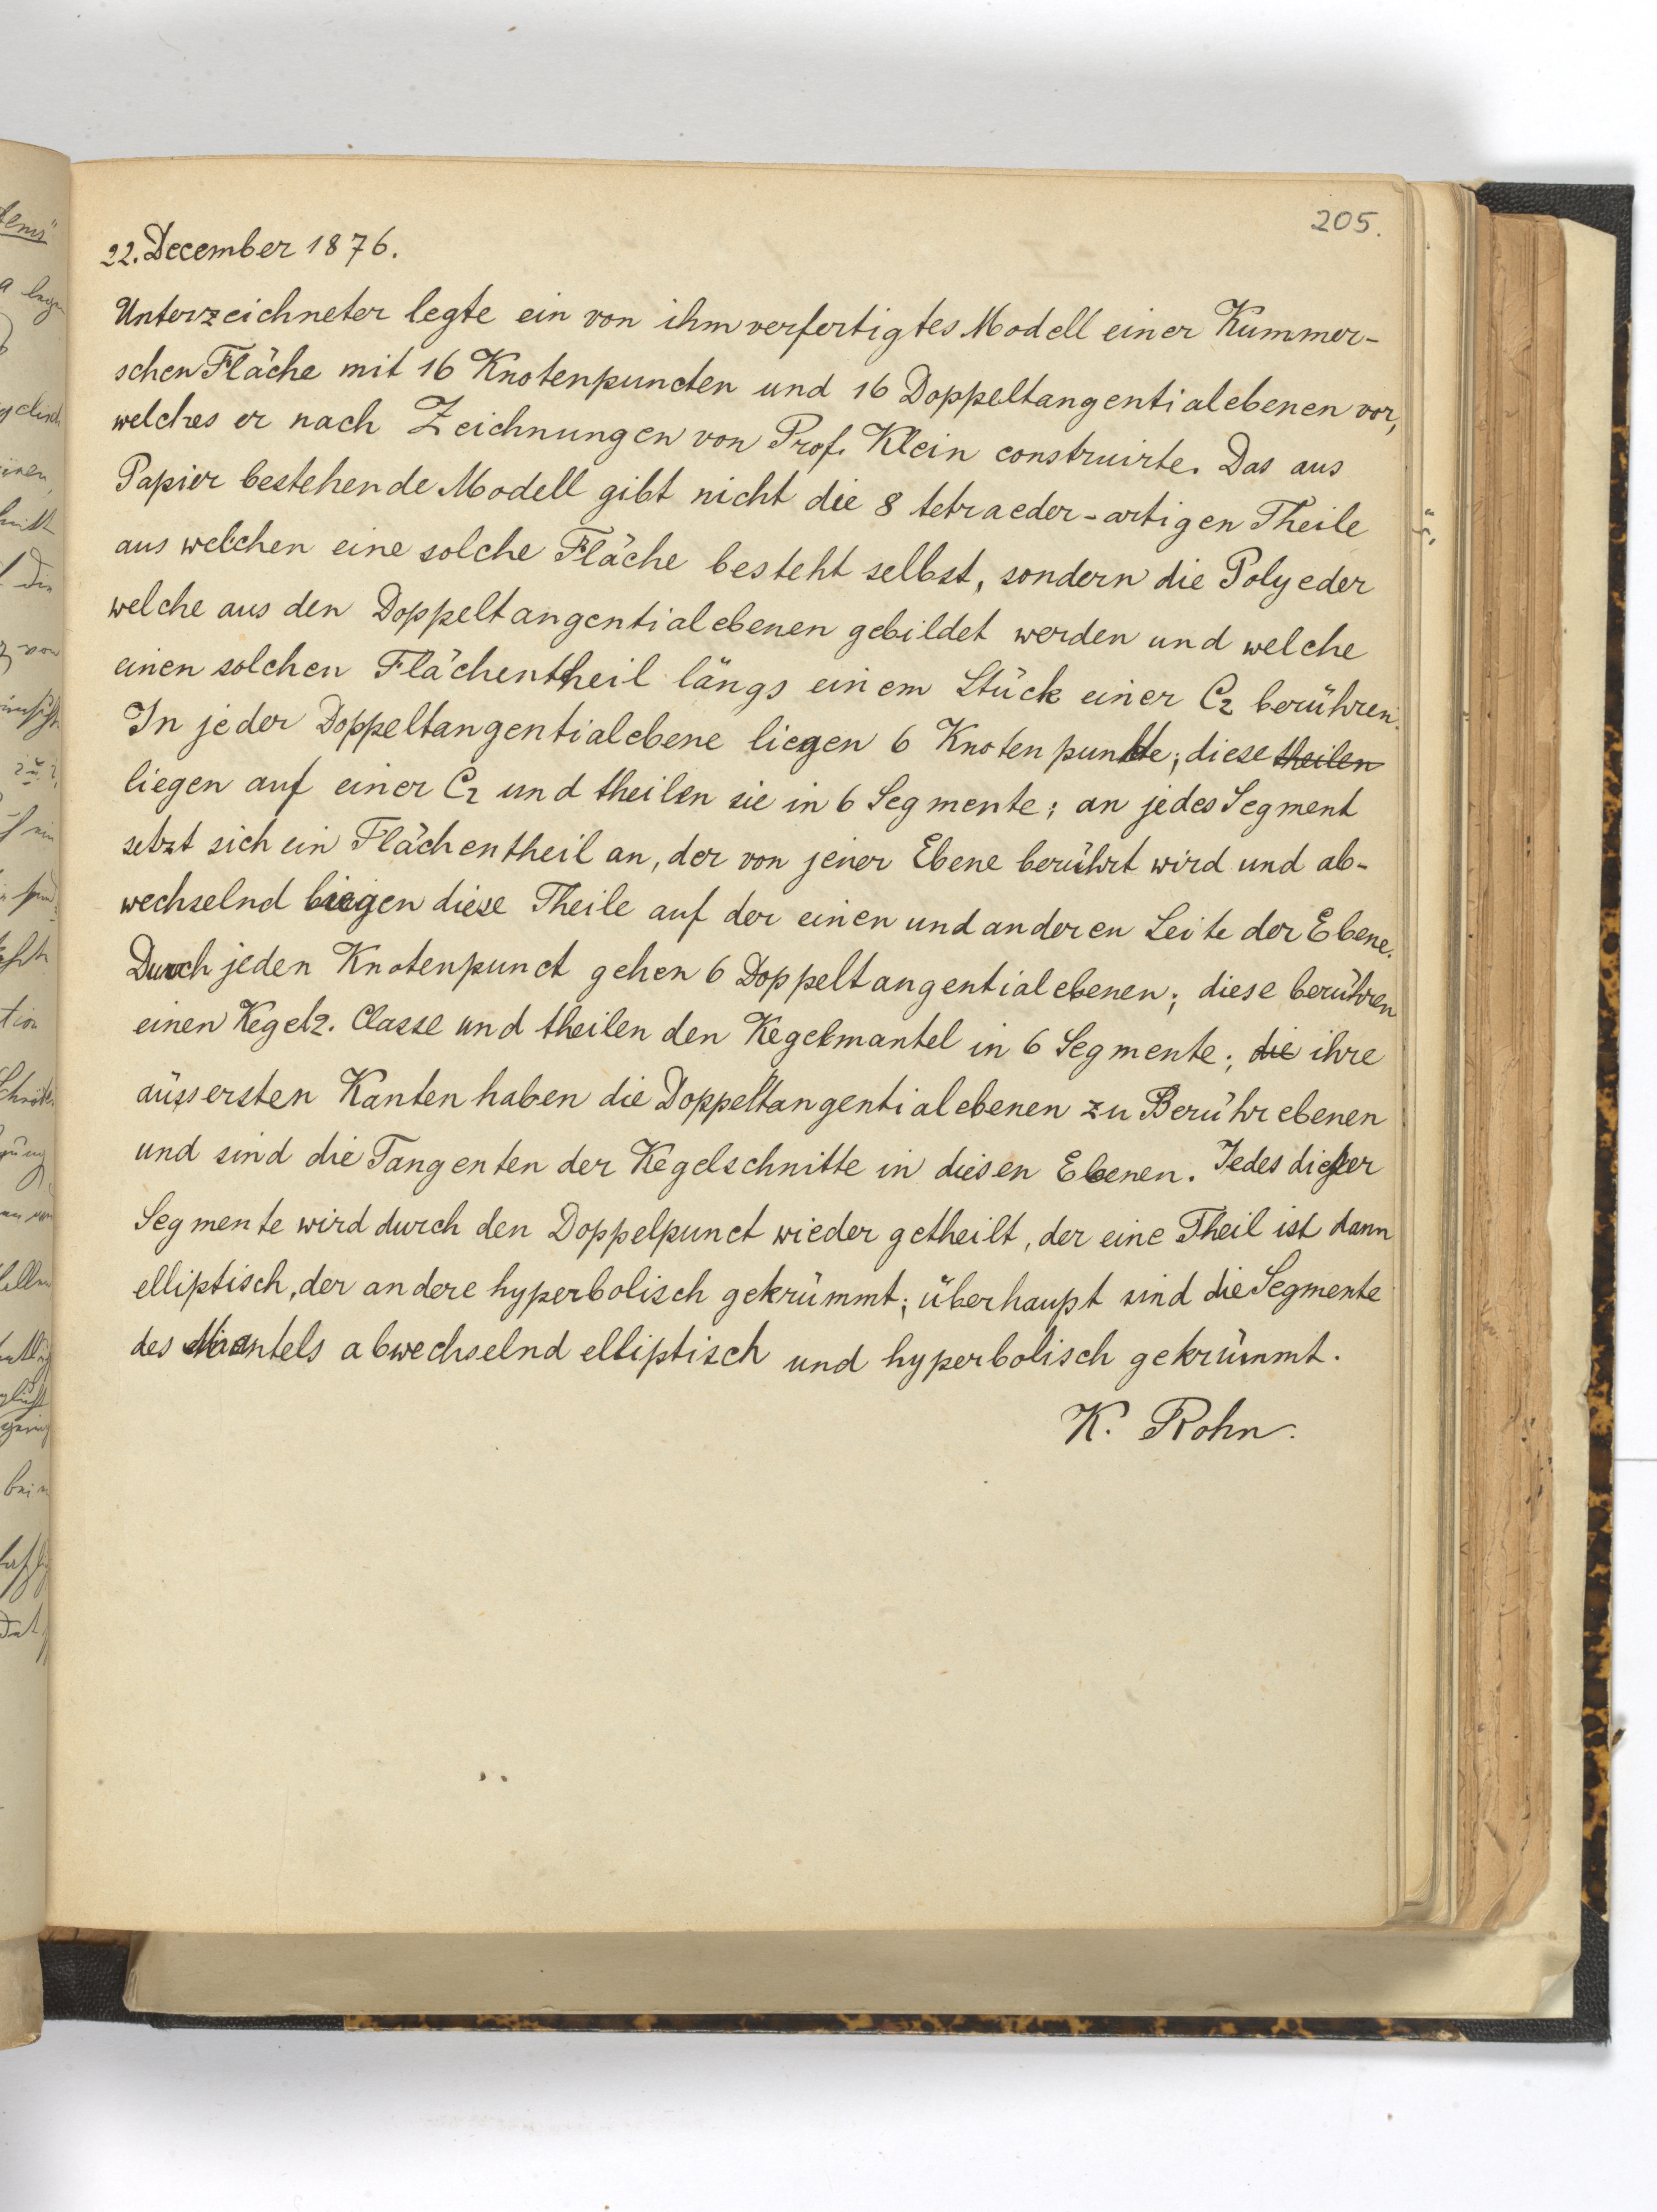 205.
22. December 1876.
Unterzeichneter legte ein von ihm verfertigtes Modell einer Kummer-
schen Fläche mit 16 Knotenpuncten und 16 Doppeltangentialebenen vor,
welches er nach Zeichnungen von Prof. Klein construirte. Das aus
Papier bestehende Modell gibt nicht die 8 tetraeder-artigen Theile
aus welchen eine solche Fläche besteht selbst, sondern die Polyeder
welche aus den Doppeltangentialebenen gebildet werden und welche
einen solchen Flächentheil längs einem Stück einer C2 berühren.
In jeder Doppeltangentialebene liegen 6 Knotenpunkte; diese theilen
liegen auf einer C2 und theilen sie in 6 Segmente; an jedes Segment
setzt sich ein Flächentheil an, der von jener Ebene berührt wird und ab-
wechselnd liegen diese Theile auf der einen und anderen Seite der Ebene.
Durch jeden Knotenpunct gehen 6 Doppeltangentialebenen; diese berühren
einen Kegel 2. Classe und theilen den Kegelmantel in 6 Segmente; die ihre
äussersten Kanten haben die Doppeltangentialebenen zu Berührebenen
und sind die Tangenten der Kegelschnitte in diesen Ebenen. Jedes dieser
Segmente wird durch den Doppelpunct wieder getheilt, der eine Theil ist dann
elliptisch, der andere hyperbolisch gekrümmt; überhaupt sind die Segmente
des Mantels abwechselnd elliptisch und hyperbolisch gekrümmt.
K. Rohn.